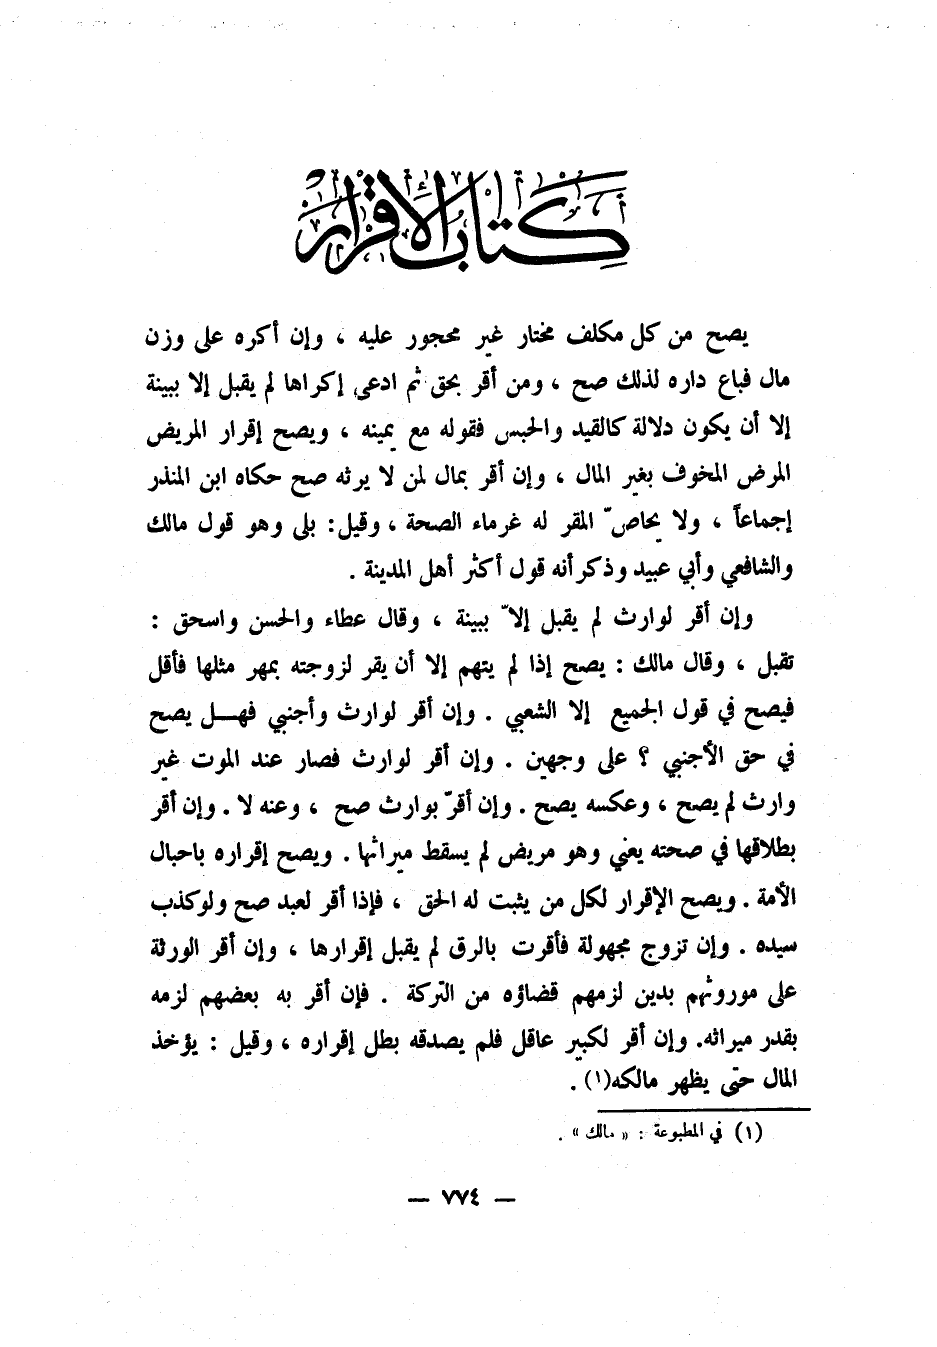 كتاب الإقرار
يصح من كل مكلف مختار غير محجور عليه ، وإن أكره على وزن
مال فباع داره لذلك صح ، ومن أقر بحق ثم ادعى إكراها لم يقبل إلا ببينة
إلا أن يكون دلالة كالقيد والحبس فقوله مع يمينه ، ويصح إقرار المريض
المرض المخوف بغير المال ، وإن أقر بمال لمن لا يرثه صح حكاه ابن المنذر
إجماعاً ، ولا يحاصّ المقر له غرماء الصحة ، وقيل : بلى وهو قول مالك
والشافعي وأبي عبيد وذكر أنه قول أكثر أهل المدينة .
وإن أقر لوارث لم يقبل إلاّ ببينة ، وقال عطاء والحسن واسحق :
تقبل ، وقال مالك : يصح إذا لم يتهم إلا أن يقر لزوجته بمهر مثلها فأقل
فيصح في قول الجميع إلا الشعبي . وإن أقر لوارث وأجنبي فهــل يصح
في حق الأجنبي ؟ على وجهين . وإن أقر لوارث فصار عند الموت غير
وارث لم يصح ، وعكسه يصح . وإن أقرّ بوارث صح ، وعنه لا . وإن أقر
بطلاقها في صحته يعني وهو مريض لم يسقط ميراثها . ويصح إقراره باحبال
الأمة . ويصح الإقرار لكل من يثبت له الحق ، فإذا أقر لعبد صح ولو كذب
سيده . وإن تزوج مجهولة فأقرت بالرق لم يقبل إقرارها ، وإن أقر الورثة
على موروثهم بدين لزمهم قضاؤه من التركة . فإن أقر به بعضهم لزمه
بقدر ميراثه. وإن أقر لكبير عاقل فلم يصدقه بطل إقراره ، وقيل : يؤخذ
المال حتى يظهر مالكه(١) .
(١) في المطبوعة : « مالك » .
— ٧٧٤ —